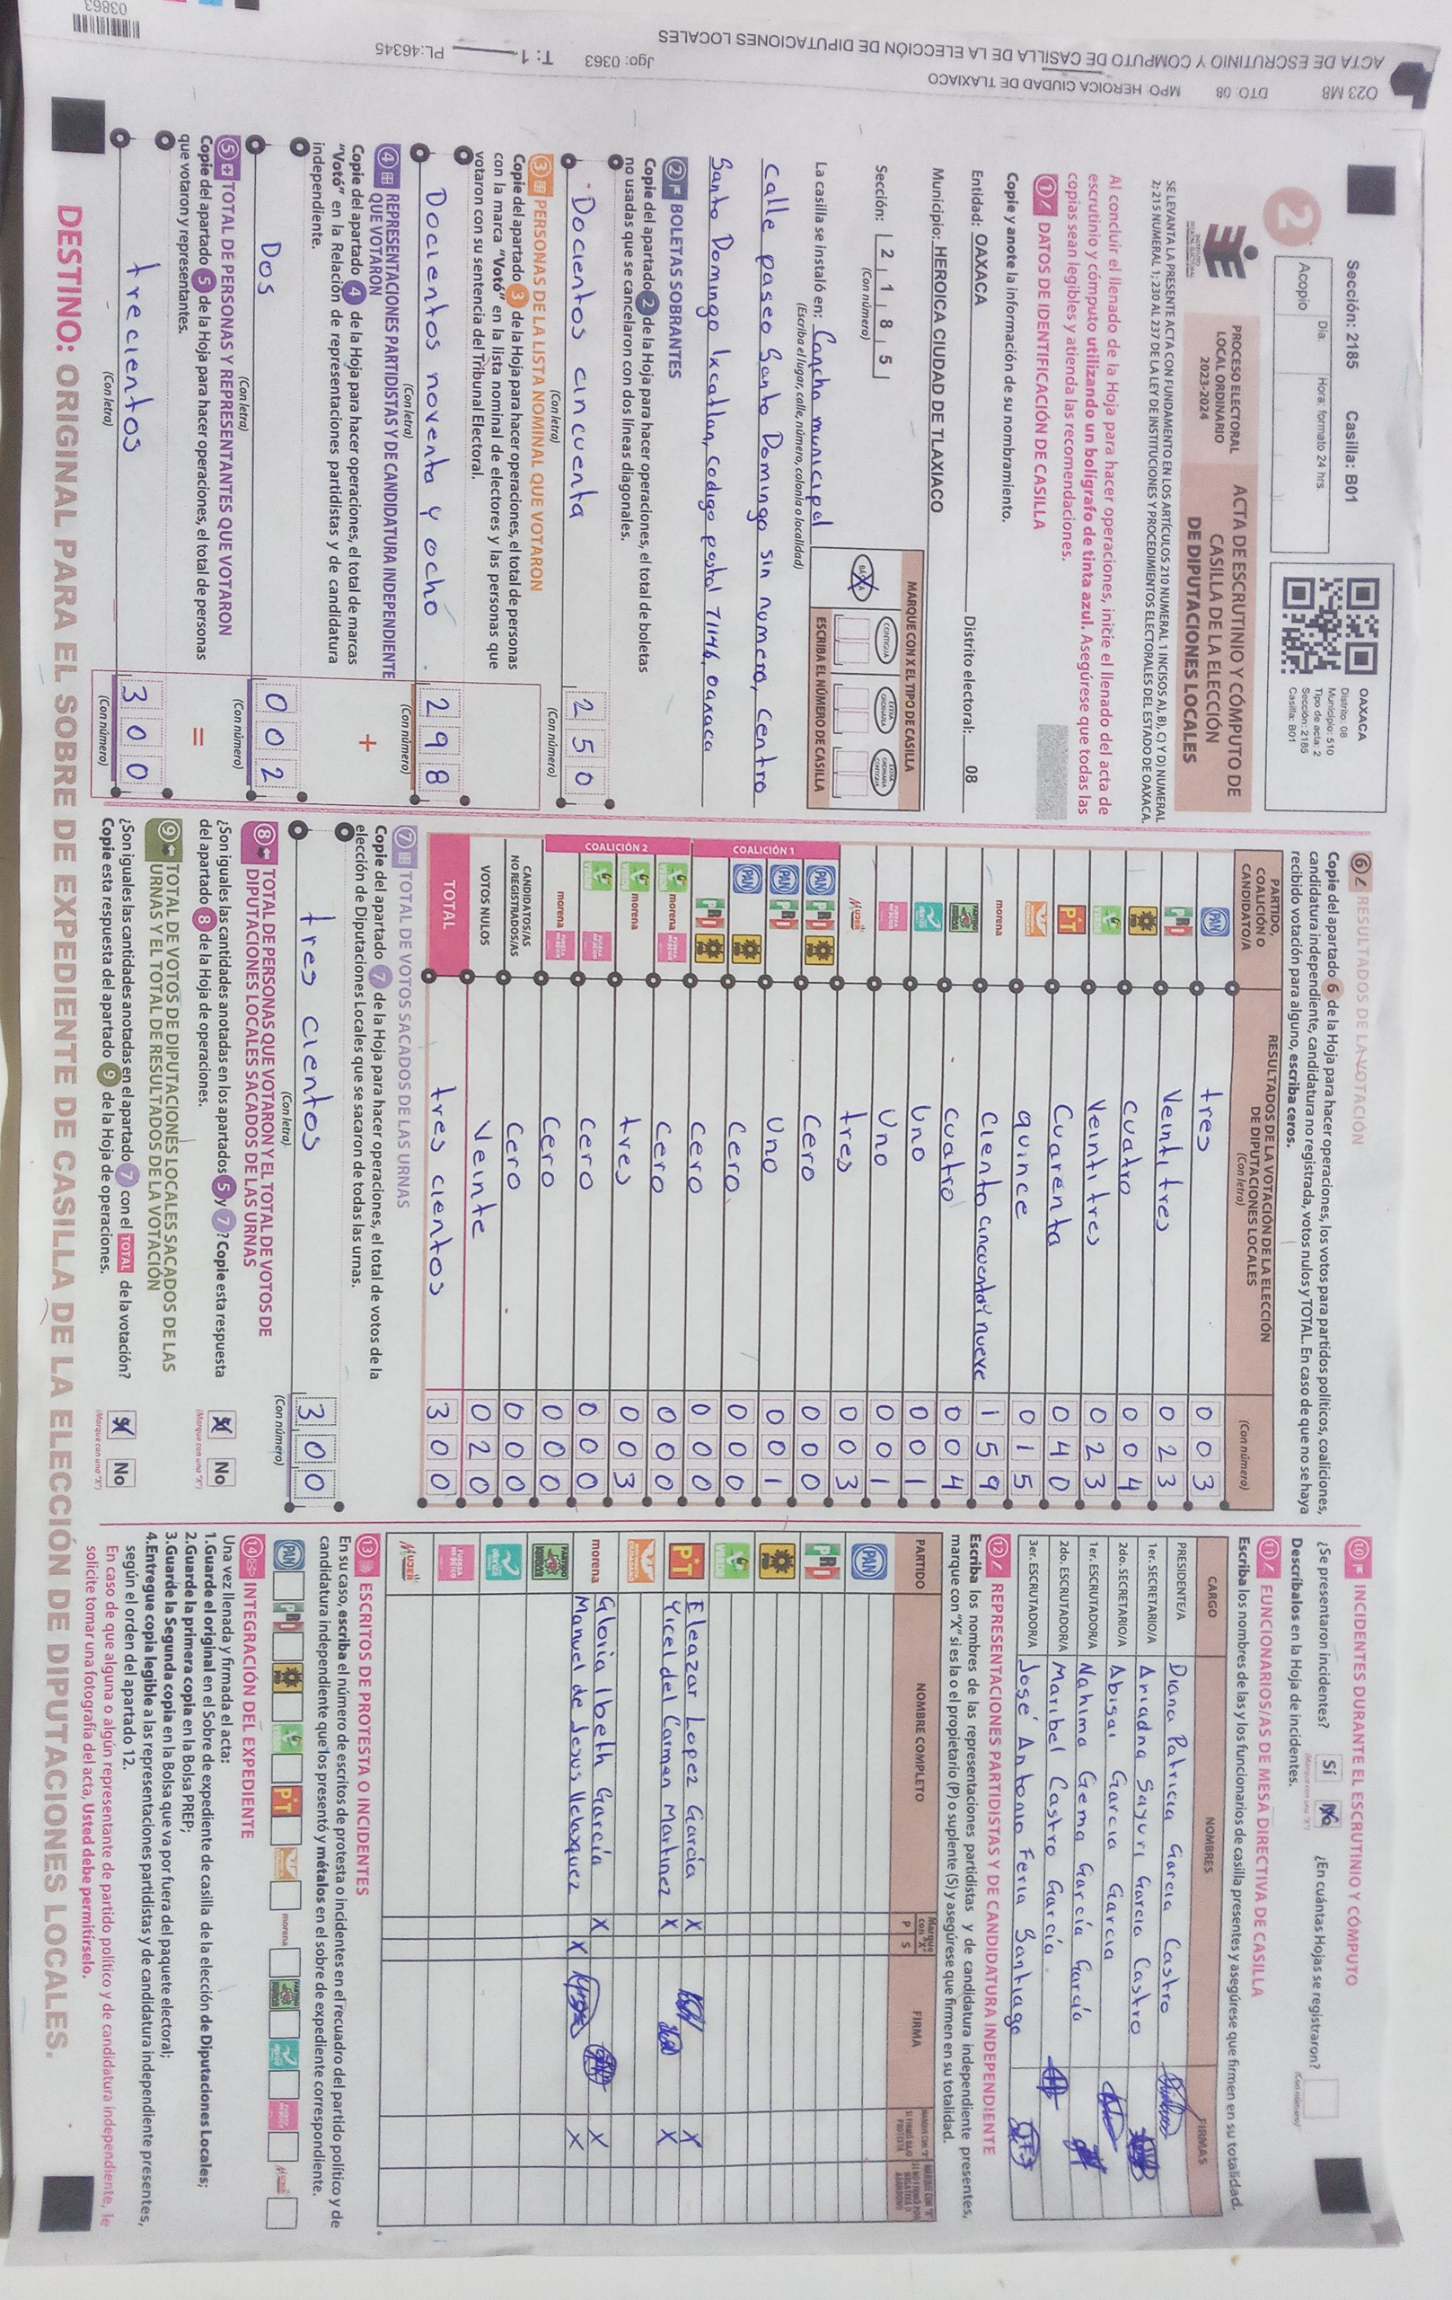 O23 M8 DTO 08 MPO HEROICA CIUDAD DE TLAXIACO
ACTA DE ESCRUTINIO Y CÓMPUTO DE CASILLA DE LA ELECCIÓN DE DIPUTACIONES LOCALES
Jgo: 0363 T: 1 PL:46345
03863
Sección: 2185 Casilla: B01
Acopio
Día:
Hora: formato 24 hrs.
OAXACA
Distrito: 08
Municipio: 510
Tipo de acta: 2
Sección: 2185
Casilla: B01
2
PROCESO ELECTORAL
LOCAL ORDINARIO
2023-2024
ACTA DE ESCRUTINIO Y CÓMPUTO DE
CASILLA DE LA ELECCIÓN
DE DIPUTACIONES LOCALES
SE LEVANTA LA PRESENTE ACTA CON FUNDAMENTO EN LOS ARTÍCULOS 210 NUMERAL 1 INCISOS A), B), C) Y D) NUMERAL
2; 215 NUMERAL 1; 230 AL 237 DE LA LEY DE INSTITUCIONES Y PROCEDIMIENTOS ELECTORALES DEL ESTADO DE OAXACA.
Al concluir el llenado de la Hoja para hacer operaciones, inicie el llenado del acta de
escrutinio y cómputo utilizando un bolígrafo de tinta azul. Asegúrese que todas las
copias sean legibles y atienda las recomendaciones.
1 DATOS DE IDENTIFICACIÓN DE CASILLA
Copie y anote la información de su nombramiento.
Entidad: OAXACA Distrito electoral: 08
Municipio: HEROICA CIUDAD DE TLAXIACO
Sección: 2 1 8 5
(Con número)
MARQUE CON X EL TIPO DE CASILLA
BÁSICA CONTIGUA EXTRAORDINARIA EXTRAORDINARIA CONTIGUA
ESCRIBA EL NÚMERO DE CASILLA
La casilla se instaló en: Cancha municipal
(Escriba el lugar, calle, número, colonia o localidad)
calle paseo Santo Domingo sin numero, Centro
Santo Domingo Ixcatlan, codigo postal 71146, oaxaca
2 BOLETAS SOBRANTES
Copie del apartado 2 de la Hoja para hacer operaciones, el total de boletas
no usadas que se cancelaron con dos líneas diagonales.
Docientos cincuenta 250
(Con letra) (Con número)
3 PERSONAS DE LA LISTA NOMINAL QUE VOTARON
Copie del apartado 3 de la Hoja para hacer operaciones, el total de personas
con la marca "Votó" en la lista nominal de electores y las personas que
votaron con su sentencia del Tribunal Electoral.
Docientos noventa y ocho 298
(Con letra) (Con número)
4 REPRESENTACIONES PARTIDISTAS Y DE CANDIDATURA INDEPENDIENTE
QUE VOTARON
+
Copie del apartado 4 de la Hoja para hacer operaciones, el total de marcas
"Votó" en la Relación de representaciones partidistas y de candidatura
independiente.
Dos 002
(Con letra) (Con número)
5 TOTAL DE PERSONAS Y REPRESENTANTES QUE VOTARON
=
Copie del apartado 5 de la Hoja para hacer operaciones, el total de personas
que votaron y representantes.
trecientos 300
(Con letra) (Con número)
6 RESULTADOS DE LA VOTACIÓN
Copie del apartado 6 de la Hoja para hacer operaciones, los votos para partidos políticos, coaliciones,
candidatura independiente, candidatura no registrada, votos nulos y TOTAL. En caso de que no se haya
recibido votación para alguno, escriba ceros.
PARTIDO,
COALICIÓN O
CANDIDATO/A
RESULTADOS DE LA VOTACIÓN DE LA ELECCIÓN
DE DIPUTACIONES LOCALES
(Con letra)
(Con número)
PAN tres 003
PRI Veintitres 023
PRD cuatro 004
VERDE Veintitres 023
PT Cuarenta 040
quince 015
morena Ciento cincuenta y nueve 159
cuatro 004
Uno 001
Uno 001
MUJER tres 003
COALICIÓN 1
PAN PRI PRD Cero 000
PAN PRI Uno 001
PAN PRD Cero 000
PRI PRD Cero 000
COALICIÓN 2
VERDE morena Cero 000
VERDE morena tres 003
VERDE Cero 000
morena Cero 000
CANDIDATOS/AS
NO REGISTRADOS/AS Cero 000
VOTOS NULOS Veinte 020
TOTAL tres cientos 300
7 TOTAL DE VOTOS SACADOS DE LAS URNAS
Copie del apartado 7 de la Hoja para hacer operaciones, el total de votos de la
elección de Diputaciones Locales que se sacaron de todas las urnas.
tres cientos 300
(Con letra) (Con número)
8 TOTAL DE PERSONAS QUE VOTARON Y EL TOTAL DE VOTOS DE
DIPUTACIONES LOCALES SACADOS DE LAS URNAS
¿Son iguales las cantidades anotadas en los apartados 5 y 7? Copie esta respuesta
del apartado 8 de la Hoja de operaciones.
Sí No
(Marque con una "X")
9 TOTAL DE VOTOS DE DIPUTACIONES LOCALES SACADOS DE LAS
URNAS Y EL TOTAL DE RESULTADOS DE LA VOTACIÓN
¿Son iguales las cantidades anotadas en el apartado 7 con el TOTAL de la votación?
Copie esta respuesta del apartado 9 de la Hoja de operaciones.
Sí No
(Marque con una "X")
10 INCIDENTES DURANTE EL ESCRUTINIO Y CÓMPUTO
¿Se presentaron incidentes? Sí No ¿En cuántas Hojas se registraron?
(Marque con una "X") (Con número)
Descríbalos en la Hoja de incidentes.
11 FUNCIONARIOS/AS DE MESA DIRECTIVA DE CASILLA
Escriba los nombres de las y los funcionarios de casilla presentes y asegúrese que firmen en su totalidad.
CARGO NOMBRES FIRMAS
PRESIDENTE/A Diana Patricia Garcia Castro
1er. SECRETARIO/A Ariadna Sayuri Garcia Castro
2do. SECRETARIO/A Abigai Garcia Garcia
1er. ESCRUTADOR/A Nahima Gema García García
2do. ESCRUTADOR/A Maribel Castro García
3er. ESCRUTADOR/A José Antonio Feria Santiago
12 REPRESENTACIONES PARTIDISTAS Y DE CANDIDATURA INDEPENDIENTE
Escriba los nombres de las representaciones partidistas y de candidatura independiente presentes,
marque con "X" si es la o el propietario (P) o suplente (S) y asegúrese que firmen en su totalidad.
PARTIDO NOMBRE COMPLETO Marque con "X" P S FIRMA
PAN
PRI
PRD
VERDE
PT Eleazar Lopez García X X
Yicel del Carmen Martinez X X
morena Gloria Ibeth García X X
Manuel de Jesus Velaxquez X X
MUJER
13 ESCRITOS DE PROTESTA O INCIDENTES
En su caso, escriba el número de escritos de protesta o incidentes en el recuadro del partido político y de
candidatura independiente que los presentó y métalos en el sobre de expediente correspondiente.
PAN PRI PRD VERDE PT morena MUJER
14 INTEGRACIÓN DEL EXPEDIENTE
Una vez llenada y firmada el acta:
1.Guarde el original en el Sobre de expediente de casilla de la elección de Diputaciones Locales;
2.Guarde la primera copia en la Bolsa PREP;
3.Guarde la Segunda copia en la Bolsa que va por fuera del paquete electoral;
4.Entregue copia legible a las representaciones partidistas y de candidatura independiente presentes,
según el orden del apartado 12.
En caso de que alguna o algún representante de partido político y de candidatura independiente, le
solicite tomar una fotografía del acta, Usted debe permitírselo.
DESTINO: ORIGINAL PARA EL SOBRE DE EXPEDIENTE DE CASILLA DE LA ELECCIÓN DE DIPUTACIONES LOCALES.